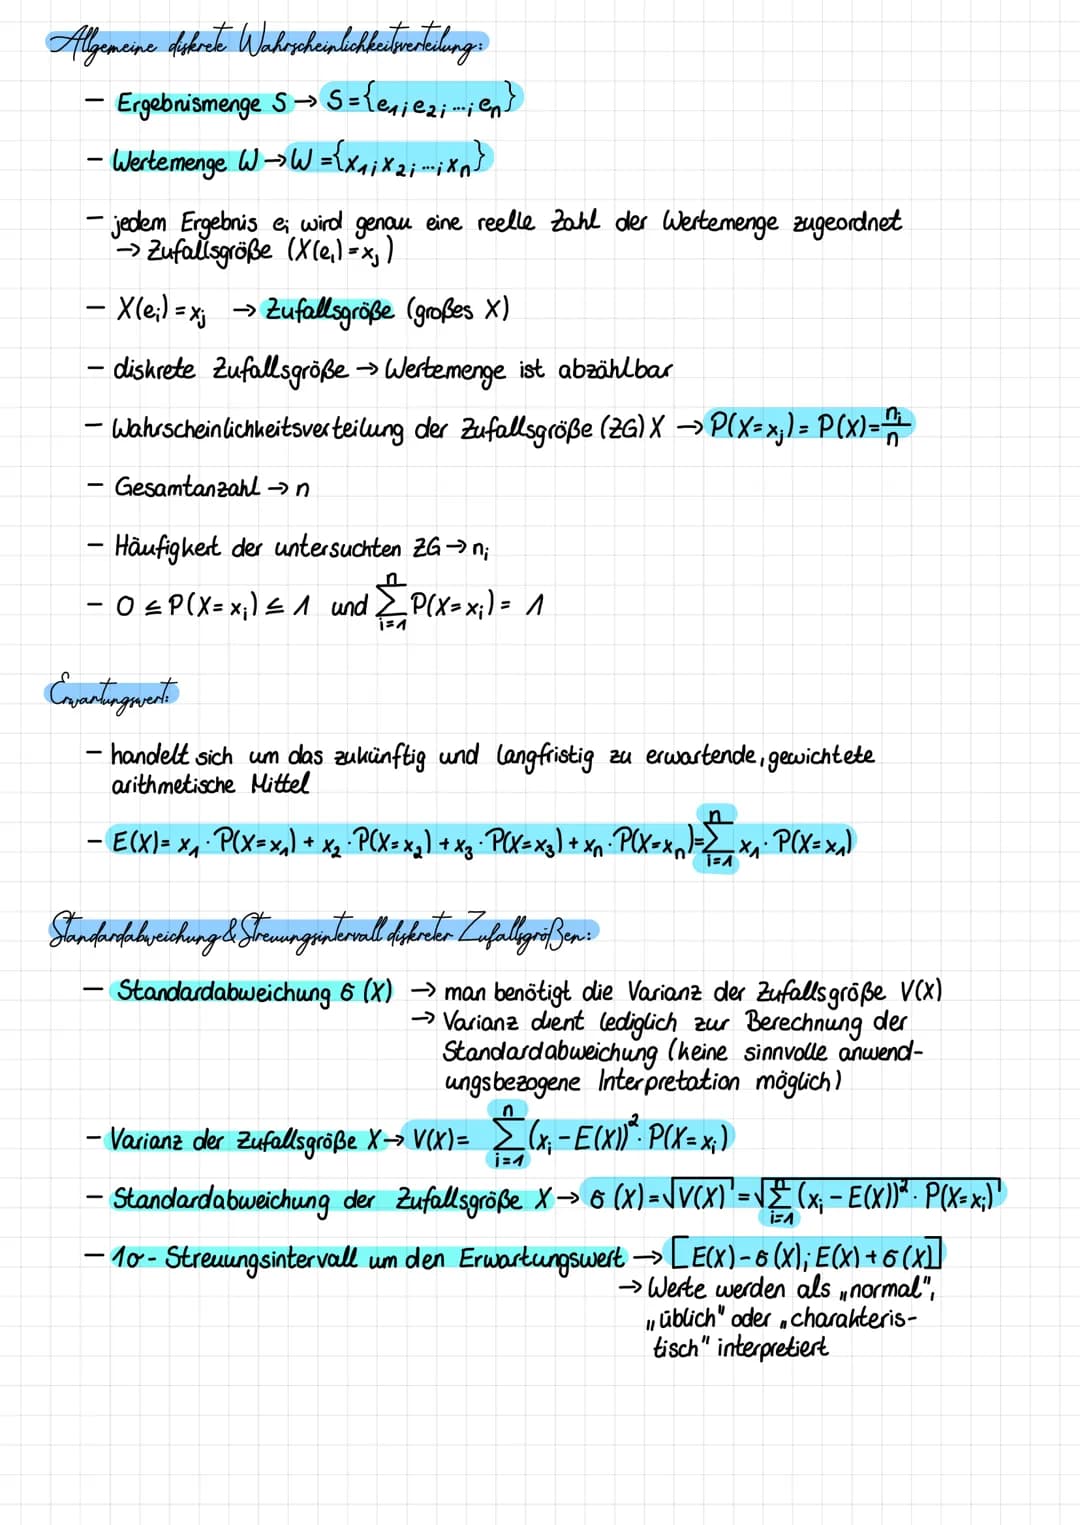 Allgemeine diskrete Wahrscheinlichkeitsverteilung:
– Ergebnismenge S → S = {e₁; e₂; ...; eₙ}
– Wertemenge W → W = {x₁; x₂; ...; xₙ}
– jedem Ergebnis eᵢ wird genau eine reelle Zahl der Wertemenge zugeordnet
→ Zufallsgröße (X(eᵢ) = xⱼ)
– X(eᵢ) = xⱼ → Zufallsgröße (großes X)
– diskrete Zufallsgröße → Wertemenge ist abzählbar
– Wahrscheinlichkeitsverteilung der Zufallsgröße (ZG) X → P(X=xⱼ) = P(X) = nᵢ/n
– Gesamtanzahl → n
– Häufigkeit der untersuchten ZG → nᵢ
– 0 ≤ P(X=xᵢ) ≤ 1 und ∑ⁿᵢ₌₁ P(X=xᵢ) = 1
Erwartungswert:
– handelt sich um das zukünftig und langfristig zu erwartende, gewichtete
arithmetische Mittel
– E(X) = x₁ · P(X=x₁) + x₂ · P(X=x₂) + x₃ · P(X=x₃) + xₙ · P(X=xₙ) = ∑ⁿᵢ₌₁ x₁ · P(X=x₁)
Standardabweichung & Streuungsintervall diskreter Zufallsgrößen:
– Standardabweichung σ (X) → man benötigt die Varianz der Zufallsgröße V(X)
→ Varianz dient lediglich zur Berechnung der
Standardabweichung (keine sinnvolle anwend-
ungsbezogene Interpretation möglich)
– Varianz der Zufallsgröße X → V(X) = ∑ⁿᵢ₌₁ (xᵢ – E(X))² · P(X=xᵢ)
– Standardabweichung der Zufallsgröße X → σ (X) = √V(X) = √∑ⁿᵢ₌₁ (xᵢ – E(X))² · P(X=xᵢ)
– 1σ - Streuungsintervall um den Erwartungswert → [E(X) – σ (X); E(X) + σ (X)]
→ Werte werden als „normal",
„üblich" oder „charakteris-
tisch" interpretiert